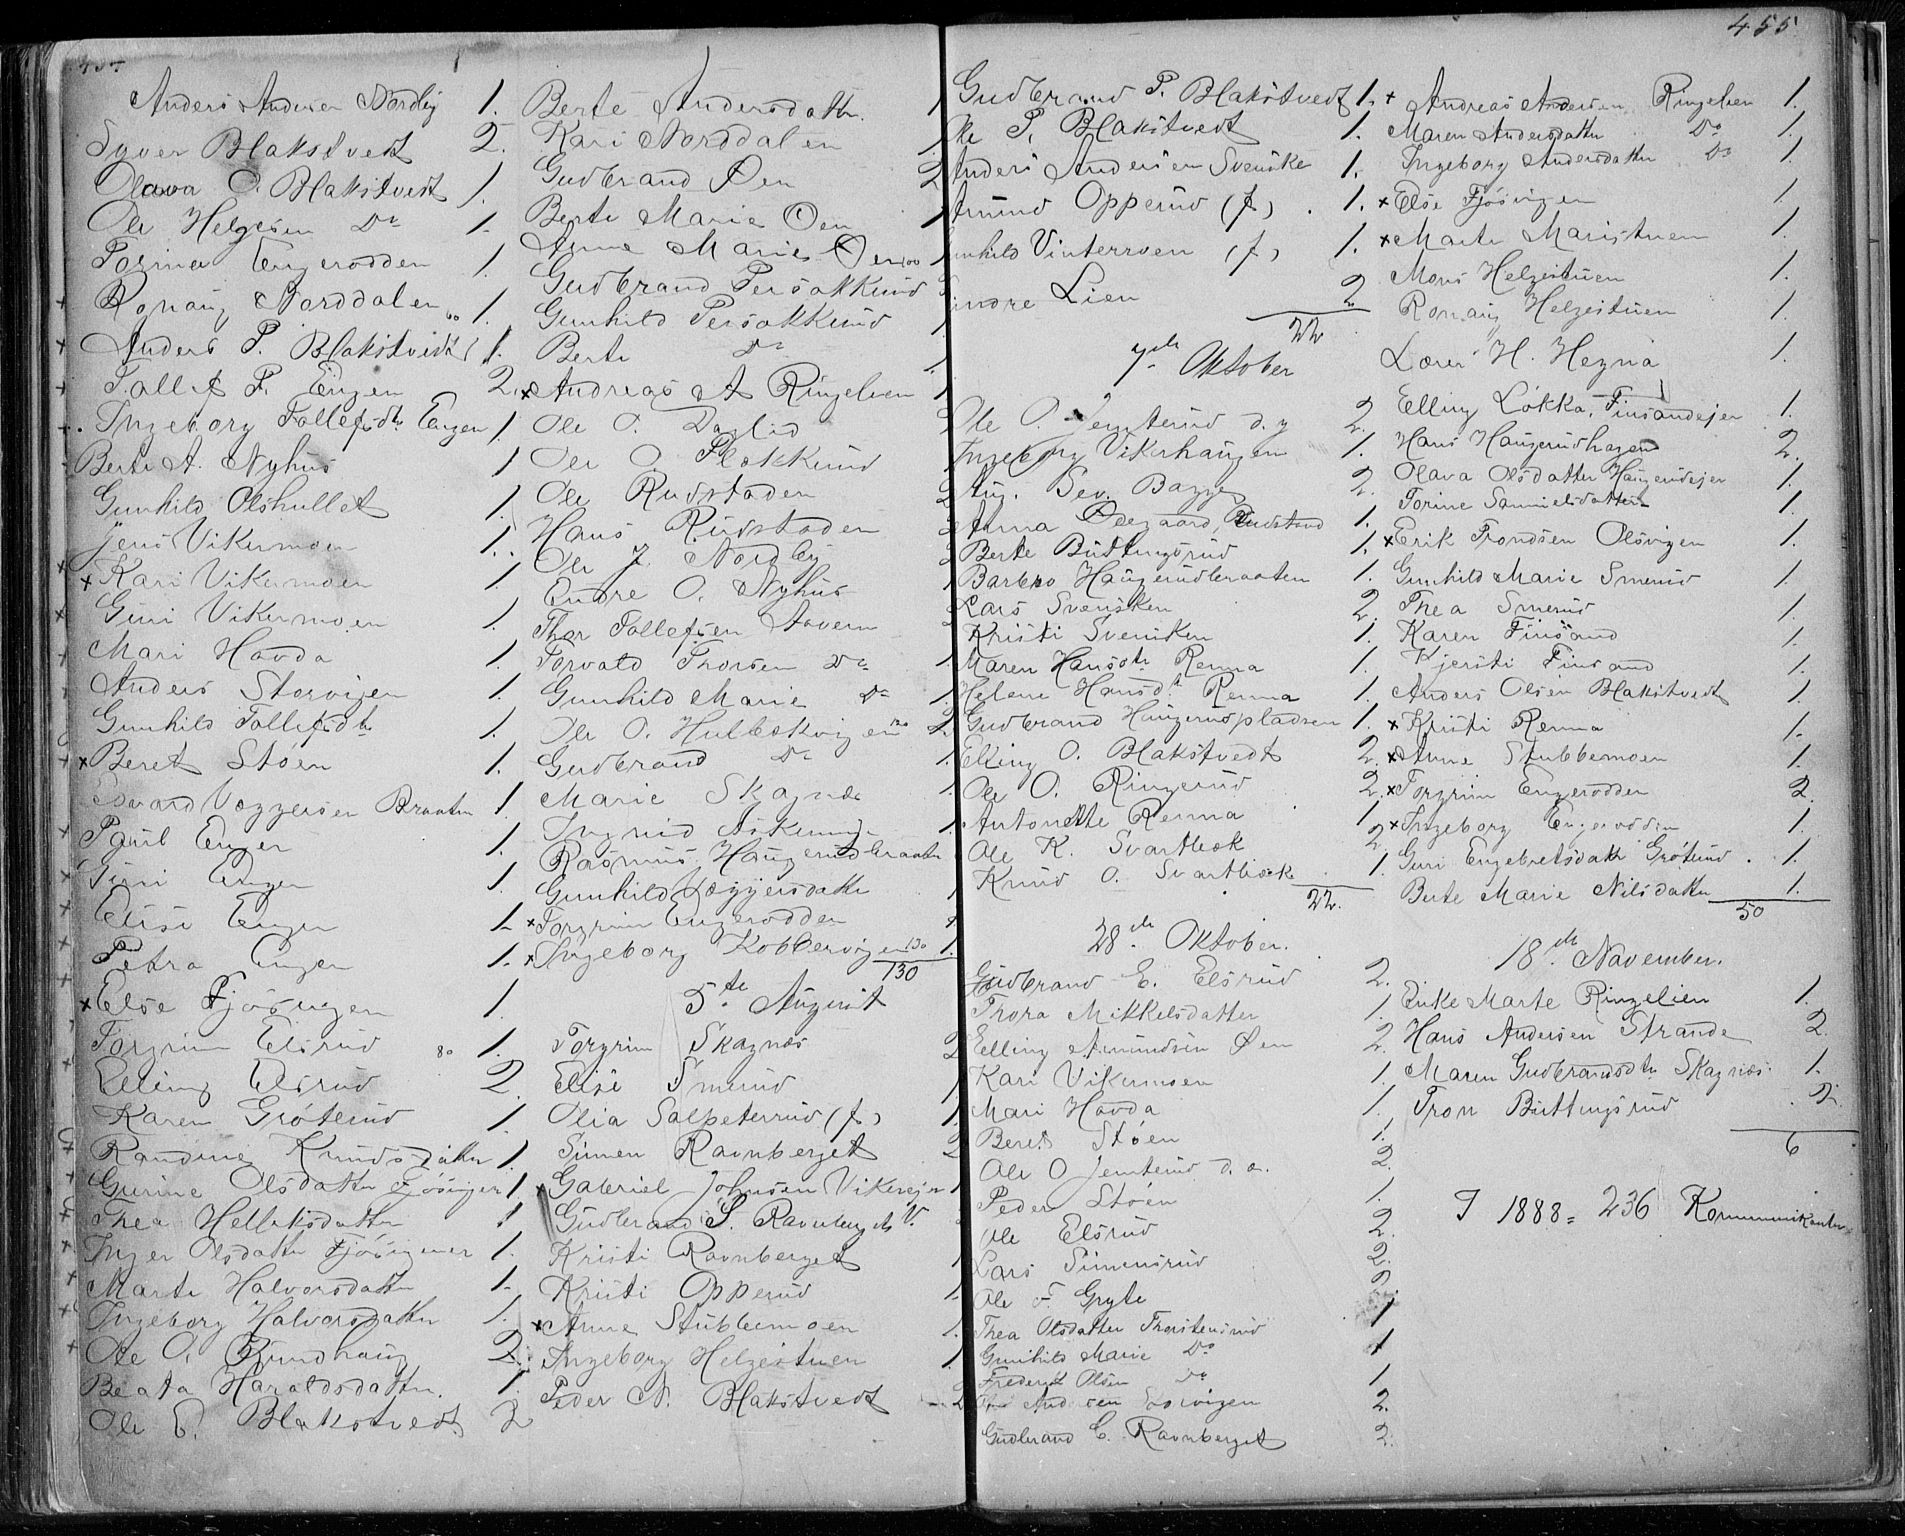 455
Anders Andersen Nordby 1.
Syver Blakstvedt 2.
Olava O. Blakstvedt 1.
Ole Helgesen Do 1.
Torine Engerodden 1.
Ronaug Norddalen 1.
Anders P. Blakstvedt 1.
Tallef P. Engen 2.
Ingeborg Tollefsdtr Engen 1
Berte A. Nyhus 1
Gunhild Olshullet 1.
Jens Vikermoen 1.
x Kari Vikermoen 1.
Guri Vikermoen 1.
Mari Havda 1.
Anders Storvigen 1.
Gunhild Tollefsdtr 1.
x Beret Støen 1.
Edvard Veggersen Braaten 1
Paul Enger 1.
Guri Engen 1.
Elise Engen 1.
Petra Engen 1.
x Else Fjøsvigen 1.
Torgrim Elsrud 80 1.
Elling Elsrud 2.
Karen Grøterud 1.
Randine Knudsdatter 1.
Gurine Olsdatter Fjøsvigen 1
Thea Helleksdatter 1
Inger Olsdatter Fjøsvigeneir 1.
Marte Halvorsdatter 1.
Ingeborg Halvorsdatter 1.
Ole O. Bjundhaug 2.
Beata Haraldsdatter 1.
Ole E. Blakstvedt 2
Berte Andersdatter 1
Kari Norddalen 1.
Gudbrand Øen 2
Berte Marie Øen 1
Anne Marie Øen 100 1
Gudbrand Persokkrud
Gunhild Persokkrud 1.
Berte Do 1.
x Andreas A Ringelien 1
Ole O. Daglid
Ole O. Flokkerud
Ole Rudstaden 2
Hans Rudstaden
Ole J. Nordby
Endre O. Nyhus 1
Thor Tollefsen Aavern
Torvald Thorsen Do 1
Gunhild Marie Do 1.
Ole O. Hulbækvigen 120 2.
Gudbrand Do 1.
Marie Skagnæs 1.
Ingrid Askerud 1.
Rasmus Haugerudbraaten 1
Gunhild Veggersdatter 1
x Torgrim Engerodden 2
x Ingeborg Kobbervigen 130 1.
130
5te August
Torgrim Skagnæs 2
Elise Smerud 1
Olia Salpeterrud (f) 1.
Simen Ravnberget 2
x Gabriel Johnsen Vikerejer 1
Gudbrand S. Ravnberget V.
Kristi Ravnberget 1
Kristi Opperud 1.
x Anne Stubbemoen 1.
Ingeborg Helgestuen 1
Peder N. Blakstvedt 2
Gudbrand P. Blakstvedt 1.
Ole P. Blakstvedt 1.
Anders Andersen Svenske 1.
Amund Opperud (f) 1.
Gunhild Vinterroen (f) 1.
Sindre Lien 2
22
7de Oktober
Ole O. Jemterud d.y 2.
Ingeborg Vikerhaugen 1.
Aug. Sev. Bagge 2
Anna Ødegaard, Rudstad 1.
Berte Buttingsrud 1.
Barbro Haugerudbraaten 1.
Lars Svensken 2.
Kristi Svensken 1.
Maren Hansdtr Renna 1.
Helene Hansdtr Renna 1.
Gudbrand Haugerudpladsen 1.
Elling O. Blakstvedt 2.
Ole O. Ringerud 2.
Antonette Renna 1.
Ole K. Svartbæk 2
Knud O. Svartbæk 1.
22.
28de Oktober.
Gudbrand E. Elsrud 2.
Thora Mikkelsdatter 1.
Elling Amundsen Øen 2.
Kari Vikermoen 1.
Mari Havda 1.
Beret Støen 1.
Ole O Jemterud d.æ. 2.
Peder Støen 1.
Ole Elsrud 2.
Lars Simensrud 2.
Ole F. Gryte 2
Thea Olsdatter Thorstensrud 1
Gunhild Marie Do 1
Frederik Olsen Do 1
Andersen 2.
Gudbrand E. Ravnberget 2.
x Andreas Andersen Ringelien 1.
Maren Andersdatter Do 1.
Ingeborg Andersdatter Do 1.
x Else Fjøsvigen 1
x Marte Maristuen 1.
Mons Helgestuen 1.
Ronaug Helgestuen 1.
Lærer H. Hegna 1.
Elling Løkka, Finsandejer 1.
Hans Haugerudhagen 2.
Olava Olsdatter Haugerudejer 1.
Torine Samuelsdatter 1.
x Erik Trondsen Olsvigen 1.
Gunhild Marie Smerud 1.
Thea Smerud 1.
Karen Finsand 1.
Kjersti Finsand 1.
Anders Olsen Blakstvedt 1.
x Kristi Renna 1.
x Anne Stubbemoen 1.
x Torgrim Engerodden 2.
x Ingeborg Engerodden 1.
Guri Engebretsdatter Grøterud 1.
Berte Marie Nilsdatter 1.
50
18de November.
Enke Marte Ringelien 1.
Hans Andersen Strande 2.
Maren Gudbrandsdtr Skagnæs 1.
Tron Buttingsrud 2.
6
I 1888 = 236 Kommunikanter